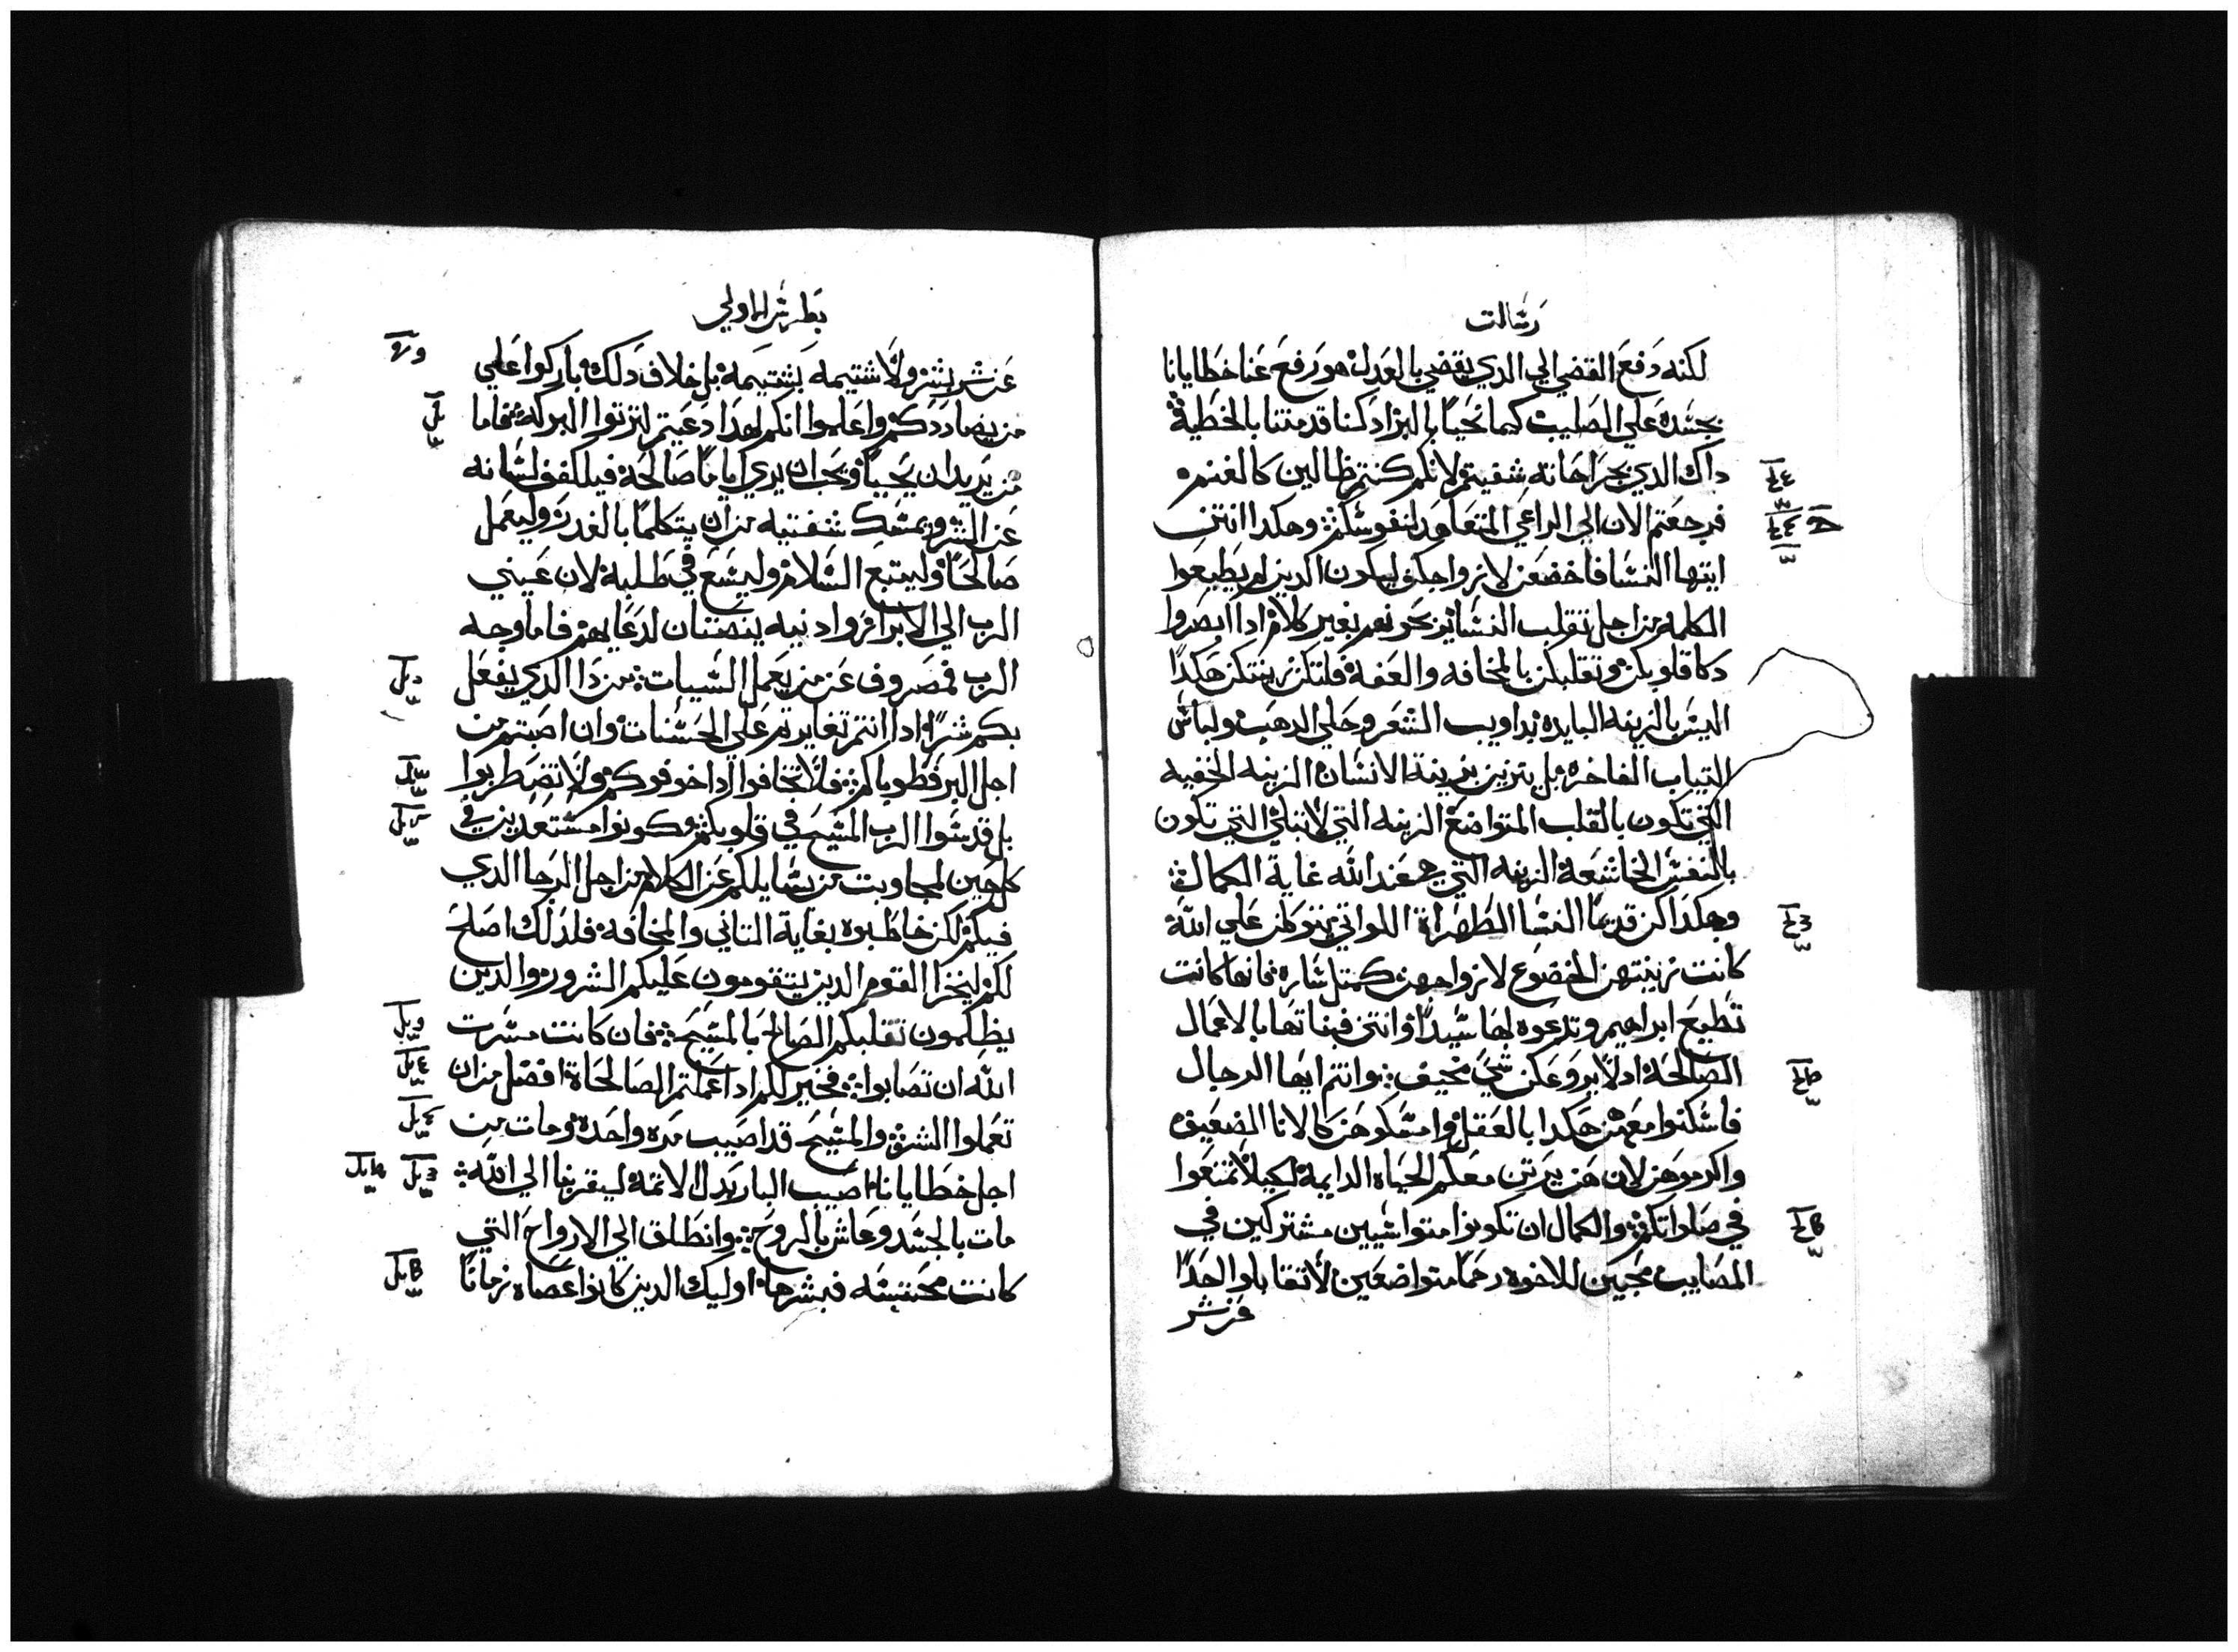 رسالت
لكنه دفع القضي الي الدي يقضي بالعدل هو رفع عنا خطايانا
بجسده علي الصليب كيما نحيا بالبر اد كنا قد متنا بالخطية
داك الدي بجراحاته شفيتم لانكم كنتم ظالين كالغنم
فرجعتم الان الي الراعي المتعاهد لنفوسكم وهكدا انتن
ايتها النسا فاخضعن لازواجكن ليكون الدين لم يطيعوا
الكلمه من اجل تقلب النسا يربحونهم بغير كلام ادا ابصروا
دكا قلوبكن وتقلبكن بالمخافه والعفه فلتكن زينتكن هكدا
ليس بالزينه البايده بداويب الشعر وحلي الدهب ولباس
التياب الفاخره بل يتزين بزينة الانسان الزينه الخفيه
التي تكون بالقلب المتواضع الزينه التي لا تبلي التي تكون
بالنفس الخاشعة الزينه التي هي عند الله غاية الكمال
وهكدا كن قديما النسا الطهراة اللواتي يتوكلن علي الله
كانت زينتهن الخضوع لازواجهن كمتل ساره فانها كانت
تطيع ابراهيم وتدعوه لها سيدا وانتن فبناتها بالاعمال
الصالحة اد لا يروعكن شي مخيف وانتم ايها الرجال
فاسكنوا معهن هكدا بالعقل وامسكوهن كالانا الضعيف
واكرموهن لان هن يرتن معكم الحياه الدايمة لكيلا تمنعوا
في صلواتكم والكمال ان تكونوا متواسيين مشتركين في
المصايب محبين للاخوه رحما متواضعين لا تقابلوا احدا
عن شر
بطرس الاولي
عن شر بشر ولا شتيمه بشتيمة بل خلاف دلك باركوا علي
من يضاددكم واعلموا انكم لهدا دعيتم لترتوا البركة فاما
من يريد ان يحيا ويحب ان يري اياما صالحة فيلكفف لسانه
عن الشر ويمسك شفتيه من ان يتكلما بالغدر وليعمل
صالحا وليتبع السلام وليسع في طلبة لان عيني
الرب الي الابرار وادنيه ينصتان لدعايهم فاما وجه
الرب فمصروف عن من يعمل السيات من دا الدي يفعل
بكم شرا ادا انتم تغايرتم علي الحسنات وان اصبتم من
اجل البر فطوباكم فلا تخافوا ادا خوفوكم ولا تضطربوا
بل قدسوا الرب المسيح في قلوبكم وكونوا مستعدين في
كل حين لمجاوبت من يسايلكم عن الكلام من اجل الرجا الدي
فيكم لكن خاطبوه بغاية التاني والمخافة فلدلك اصلح
لكم ليخزا القوم الدين يتقومون عليكم الشرور والدين
يظلمون تقلبكم الصالح بالمسيح فان كانت مسرت
الله ان تصابوا فخير لكم ادا عملتم الصالحاة افضل من ان
تعملوا الشر والمسيح قد اصيب مره واحدة ومات من
اجل خطايانا اصيب البار بدل الاتمة ليقربنا الي الله
مات بالجسد وعاش بالروح وانطلق الي الارواح التي
كانت محتبسه فبشرها اوليك الدين كانوا عصاه زمانا